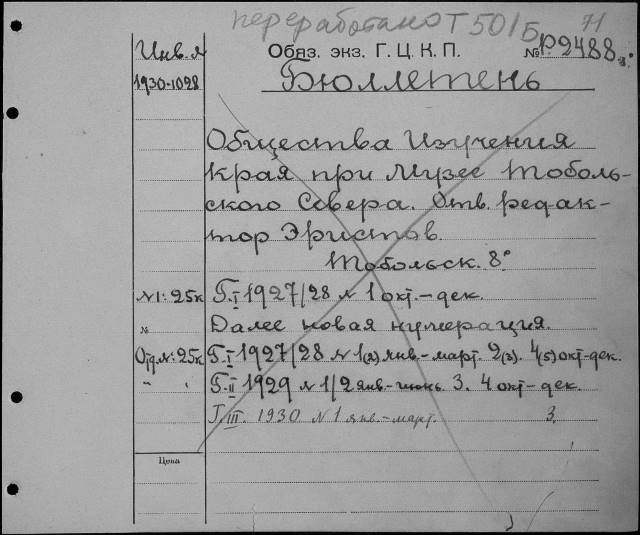 переработано Т 501Б 71
Инв. № Обяз. экз. Г. Ц. К. П. № Р.2488.
1930-1028 Бюллетень
Общества Изучения
Края при Музее Тоболь-
ского Севера. Отв. редак-
тор Эристов.
Тобольск. 8°
№1: 25к Г.I 1927/28 № 1 окт.-дек.
№ Далее новая нумерация.
Отд.№: 25к Г.I 1927/28 № 1(2) янв-март. 2(3). 4(5) окт-дек.
" " Г.II 1929 № 1/2 янв-июнь 3. 4 окт-дек.
Г.III. 1930 № 1 янв.-март. 3.
Цена